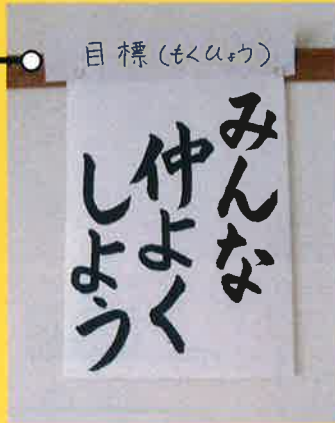 目標(もくひょう)
みんな
仲よく
しよう